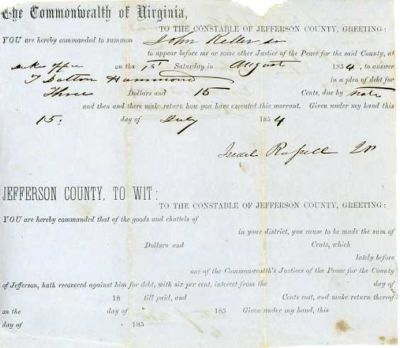 The Commonwealth of Virginia,
TO THE CONSTABLE OF JEFFERSON COUNTY, GREETING:
YOU are hereby commanded to summon John
to appear before me or some other Justice of the Peace for the said County, at
office on the 1st Saturday in August 1854, to answer
Hammond in a plea of debt for
Three Dollars and 15 Cents, due by Note
and then and there make return how you have executed this warrant. Given under my hand this
15. day of July 1854
Israel Russell JP
JEFFERSON COUNTY, TO WIT:
TO THE CONSTABLE OF JEFFERSON COUNTY, GREETING:
YOU are hereby commanded that of the goods and chattels of
in your district, you cause to be made the sum of
Dollars and Cents, which
lately before
one of the Commonwealth's Justices of the Peace for the County
of Jefferson, hath recovered against him for debt, with six per cent, interest from the day of
18 till paid, and Cents cost, and make return thereof
on the day of 185 Given under my hand, this
day of 185